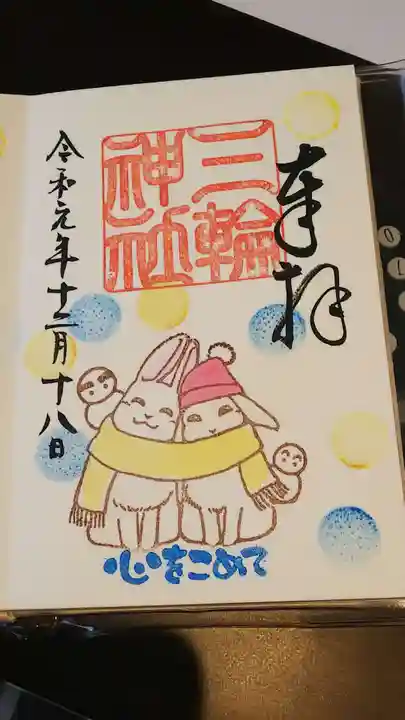 奉拝
三輪
神社
令和元年十二月十八日
心をこめて